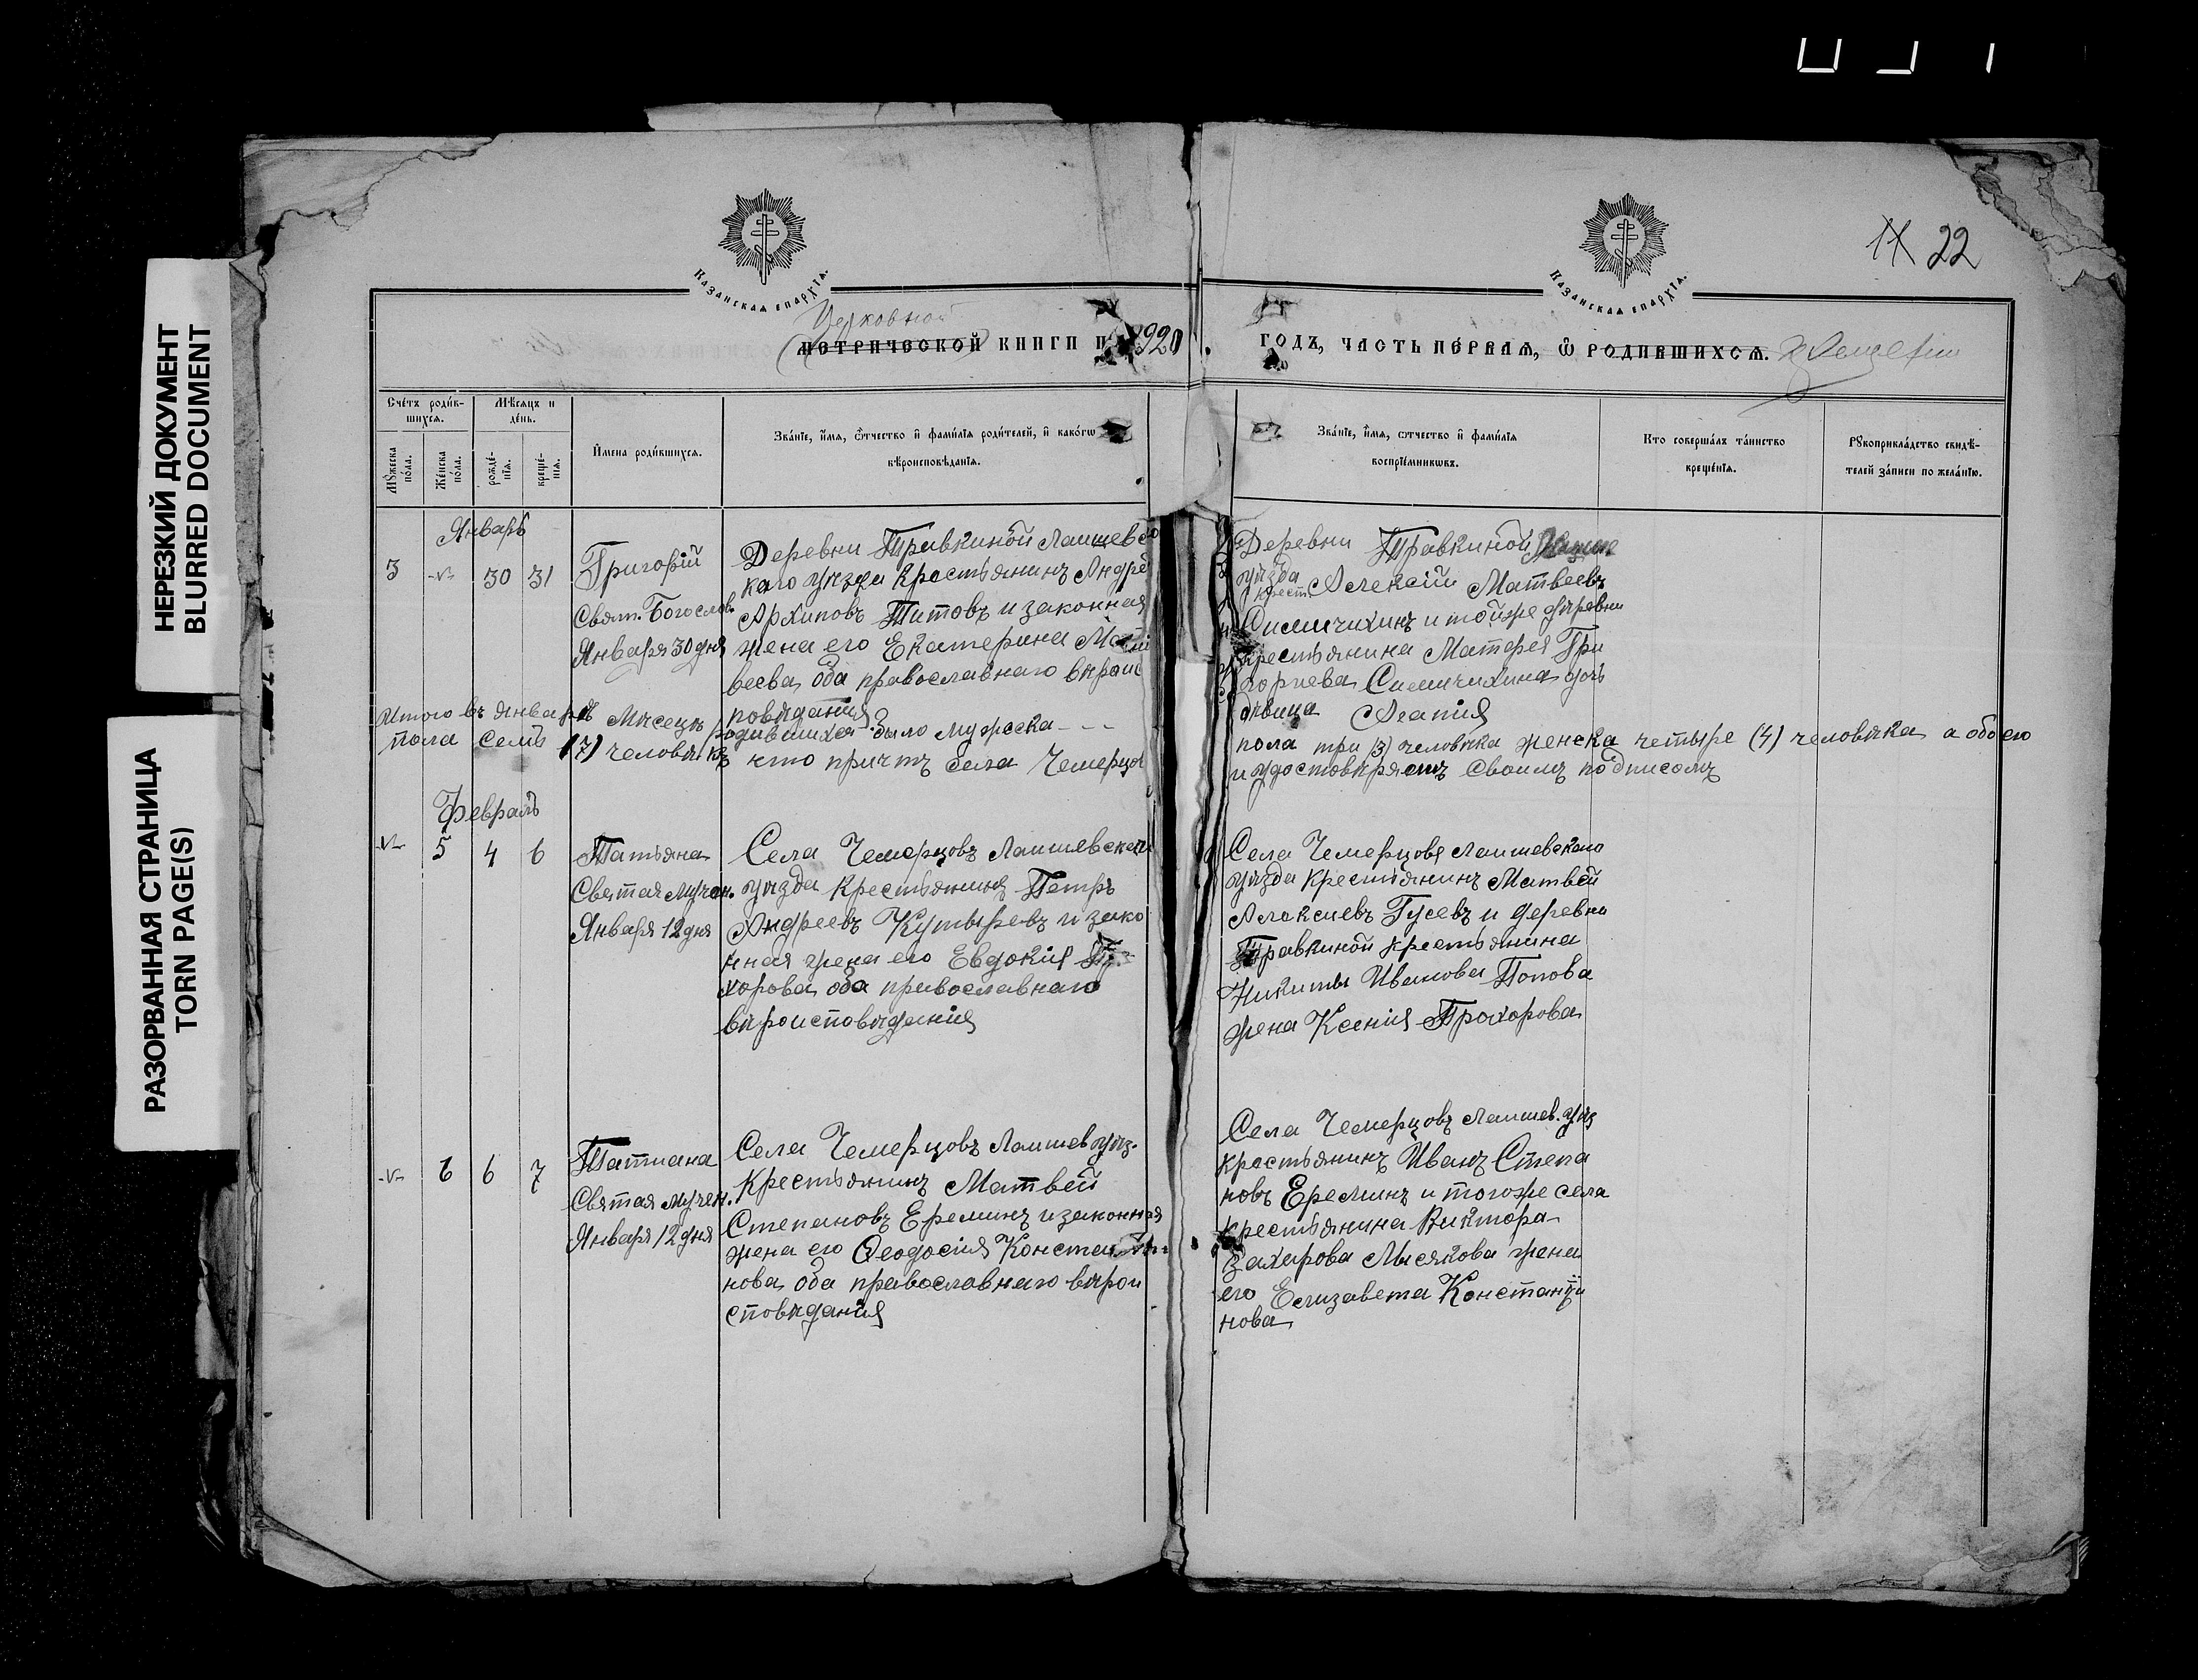 НЕРЕЗКИЙ ДОКУМЕНТ
BLURRED DOCUMENT
РАЗОРВАННАЯ СТРАНИЦА
TORN PAGE(S)
Казанская епархїѧ.
Казанская епархїѧ.
11 22
Церковной
метрической книги 1920
годъ, часть пе́рваѧ, ѡ родившихсѧ.
Сче́тъ роди́в-
шихсѧ.
Мѣ́сѧцъ и
де́нь.
Мꙋ́жеска по́ла.
Же́нска по́ла.
рожде́-
нїѧ.
креще́-
нїѧ.
И́мена роди́вшихсѧ.
Зва́нїе, и́мѧ, ѻ́тчество и фами́лїѧ роди́телей, и како́гѡ
вѣроисповѣ́данїѧ.
Зва́нїе, и́мѧ, ѻ́тчество и фами́лїѧ
воспрїе́мникѡвъ.
Кто соверша́лъ та́инство
креще́нїѧ.
Рꙋкоприкла́дство свидѣ́-
телей за́писи по жела́нїю.
Январь
3 30 31
Григорій
Свят. Богослов.
Января 30 дня
Деревни Травкиной Лаишевс
каго уѣзда крестьянинъ Андре
Архиповъ Титовъ и законная
жена его Екатерина Мат
веева, оба православнаго вѣроис
повѣданія
Деревни Травкиной
уѣзда
крест. Алексій Матвеевъ
Симичихинъ и той же деревни
крестьянина Матфея Гри
горьева Симичихина дочь
дѣвица Агапія
Итого въ январѣ месецѣ родившихся было мужеска - - -
пола три (3) человѣка женска четыре (4) человѣка а обоего
пола семь (7) человѣкъ что причтъ села Чемерцов
и удостовѣряетъ своимъ подписомъ
Февраль
5 4 6
Татьяна
Святая мучен.
Января 12 дня
Села Чемерцовъ Лаишевскаг
уѣзда крестьянинъ Петръ
Андреевъ Кутыревъ и зако
нная жена его Евдокия
хорова, оба православнаго
вѣроисповѣданія
Села Чемерцовъ Лаишевскаго
уѣзда крестьянинъ Матвей
Алексиевъ Гусевъ и деревни
Травкиной крестьянина
Никиты Иванова Попова
жена Ксенія Прохорова
6 6 7
Татиана
Святая мучен.
Января 12 дня
Села Чемерцовъ Лаишев уѣз.
крестьянинъ Матвей
Степановъ Ереминъ и законная
жена его Ѳеодосия Констан
нова, оба православнаго вѣрои
сповѣданія
Села Чемерцовъ Лаишев. уѣз
крестьянинъ Иванъ Степа
новъ Ереминъ и тогоже села
крестьянина Виктора
Захарова Мысякова жена
его Елизавета Константи
нова